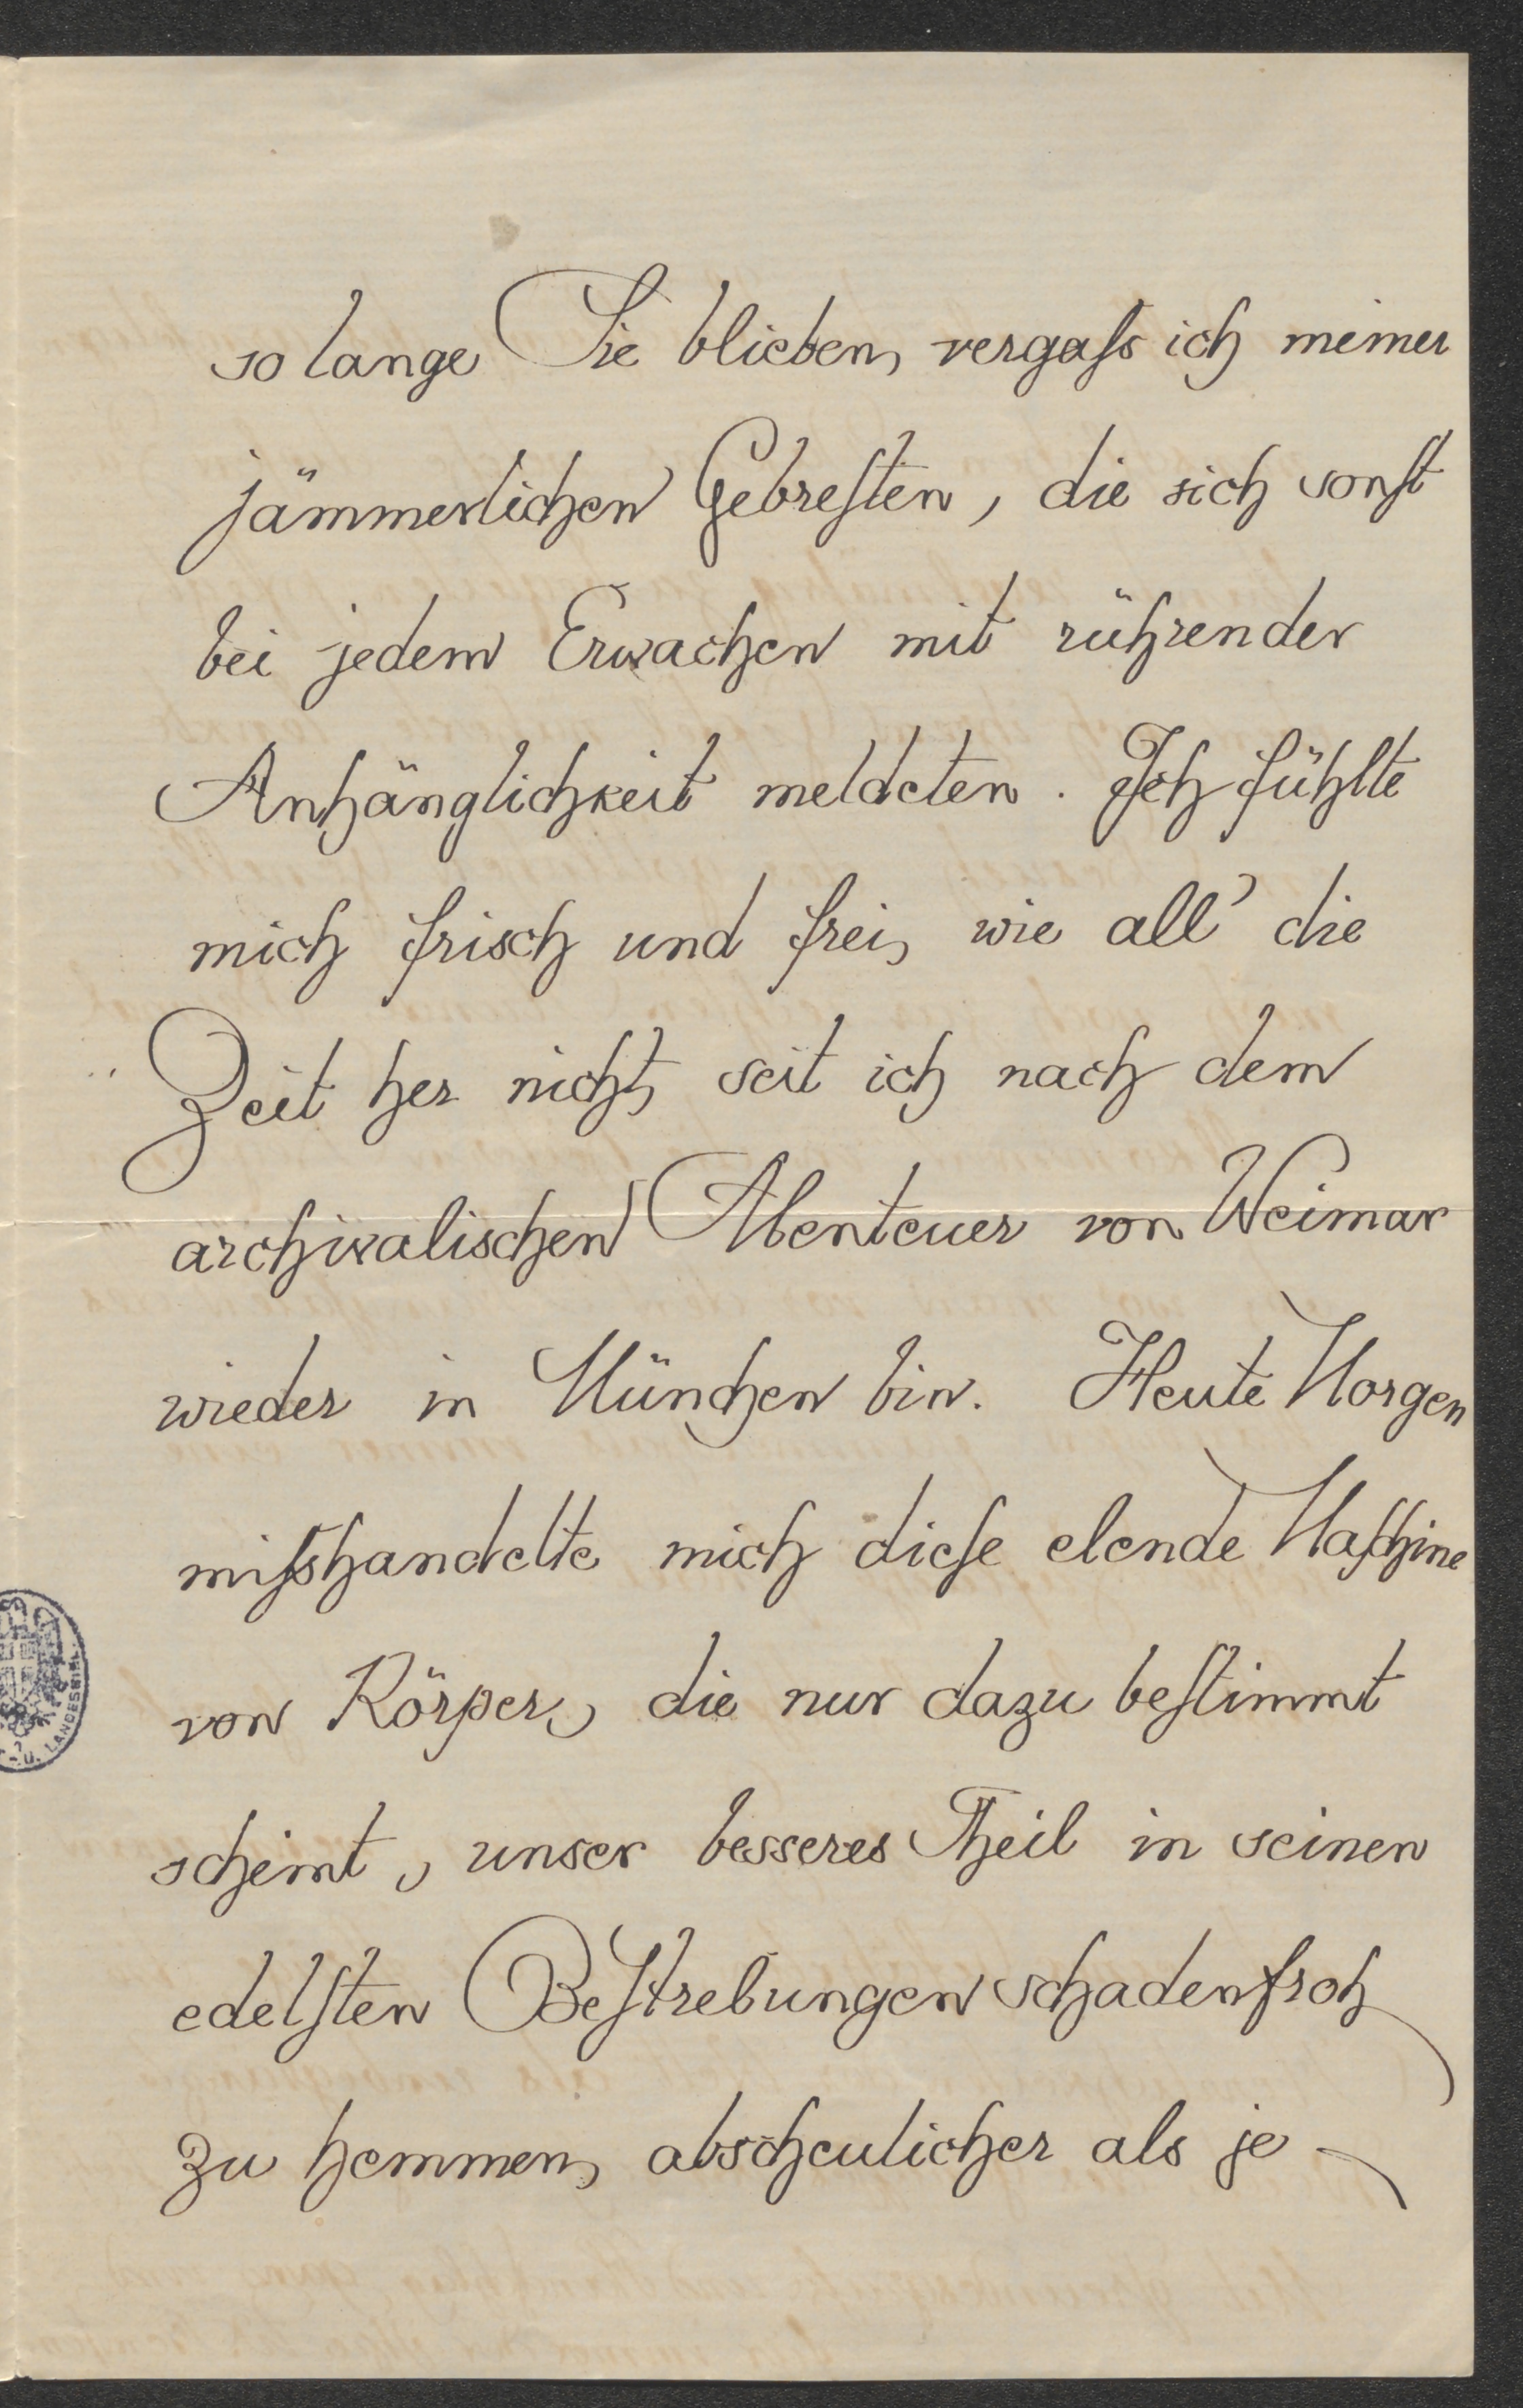 so lange Sie blieben, vergaſs ich meiner
jämmerlichen Gebreſten, die sich sonſt
bei jedem Erwachen mit rührender
Anhänglichkeit meldeten. Ich fühlte
mich frisch und frei, wie all' die
Zeit her nicht, seit ich nach dem
archivalischen Abenteuer von Weimar
wieder in München bin. Heute Morgen
miſshandelte mich dieſe elende Maſchine
von Körper, die nur dazu beſtimmt
scheint, unser besseres Theil in seinen
edelſten Beſtrebungen schadenfroh
zu hemmen, abscheulicher als je
U. LANDESBIBL.